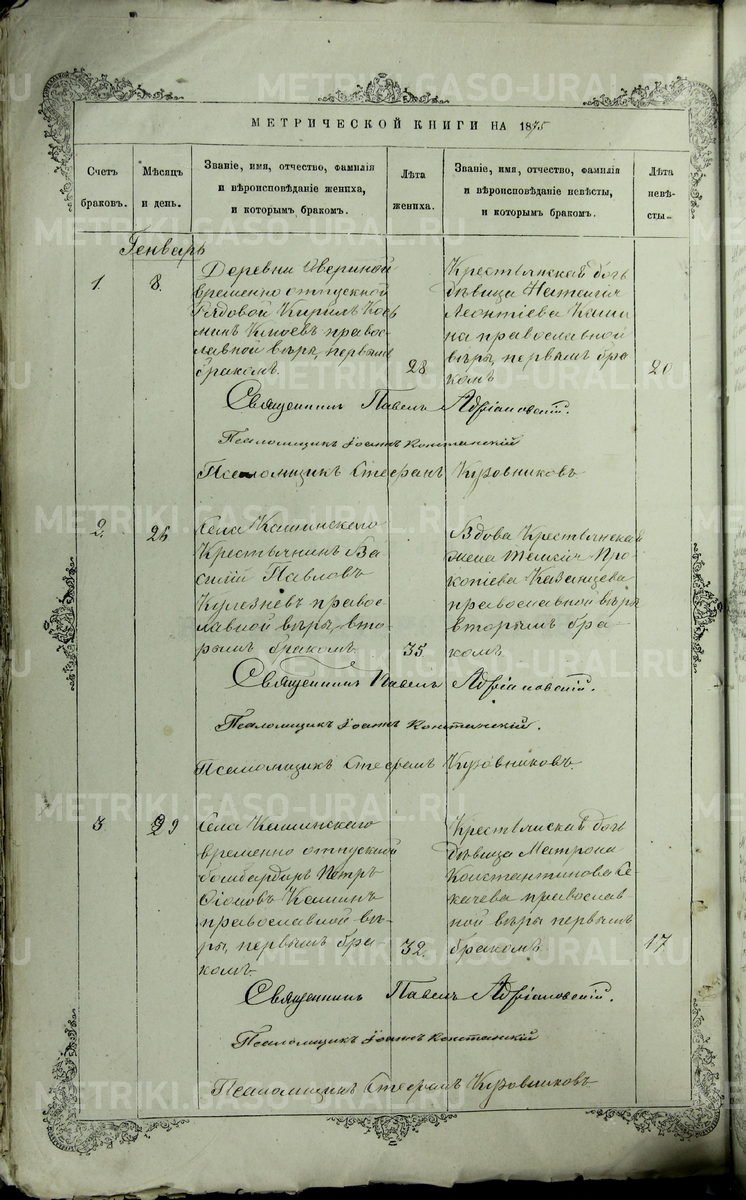 МЕТРИЧЕСКОЙ КНИГИ НА 1875
Счетъ браковъ.
Мѣсяцъ и день.
Званіе, имя, отчество, фамилія и вѣроисповѣданіе жениха, и которымъ бракомъ.
Лѣта жениха.
Званіе, имя, отчество, фамилія и вѣроисповѣданіе невѣсты, и которымъ бракомъ.
Лѣта невѣсты.
Генварь
1.
8.
Деревни Авериной
временно отпускной
рядовой Кирилъ Кос
минъ Клюевъ право
славной вѣры, первымъ
бракомъ
28
Крестьянская дочь
дѣвица Наталія
Леонтіева Каши
на православной
вѣры, первымъ бра
комъ
20
Священникъ Павелъ Адріановскій.
Псаломщикъ Іоаннъ Констанскій
Псаломщикъ Стефанъ Куровниковъ
2.
26
Села Кашинскаго
Крестьянинъ Ва
силій Павловъ
православ
ной вѣры, вто
рымъ бракомъ
35
Вдова Крестьянская
жена Про
копіева Казанцева
православной вѣры
вторымъ бра
комъ
Священникъ Павелъ Адріановскій.
Псаломщикъ Іоаннъ Констанскій.
Псаломщикъ Стефанъ Куровниковъ.
3
29
Села Кашинскаго
временно отпускной
бомбардиръ Петръ
Кашинъ
православной вѣ-
ры, первымъ бра
комъ
32.
Крестьянская дочь
дѣвица Матрона
Константинова Се
качева православ
ной вѣры первымъ
бракомъ
17
Священникъ Павелъ Адріановскій.
Псаломщикъ Іоаннъ Констанскій
Псаломщикъ Стефанъ Куровниковъ
METRIKI.GASO-URAL.RU